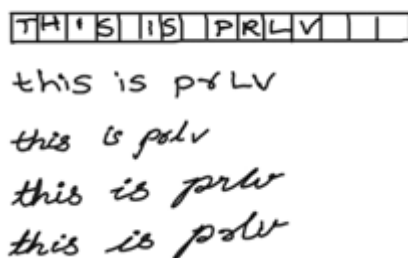 THIS IS PRLV
this is prLV
this is prlv
this is prlv
this is prlv